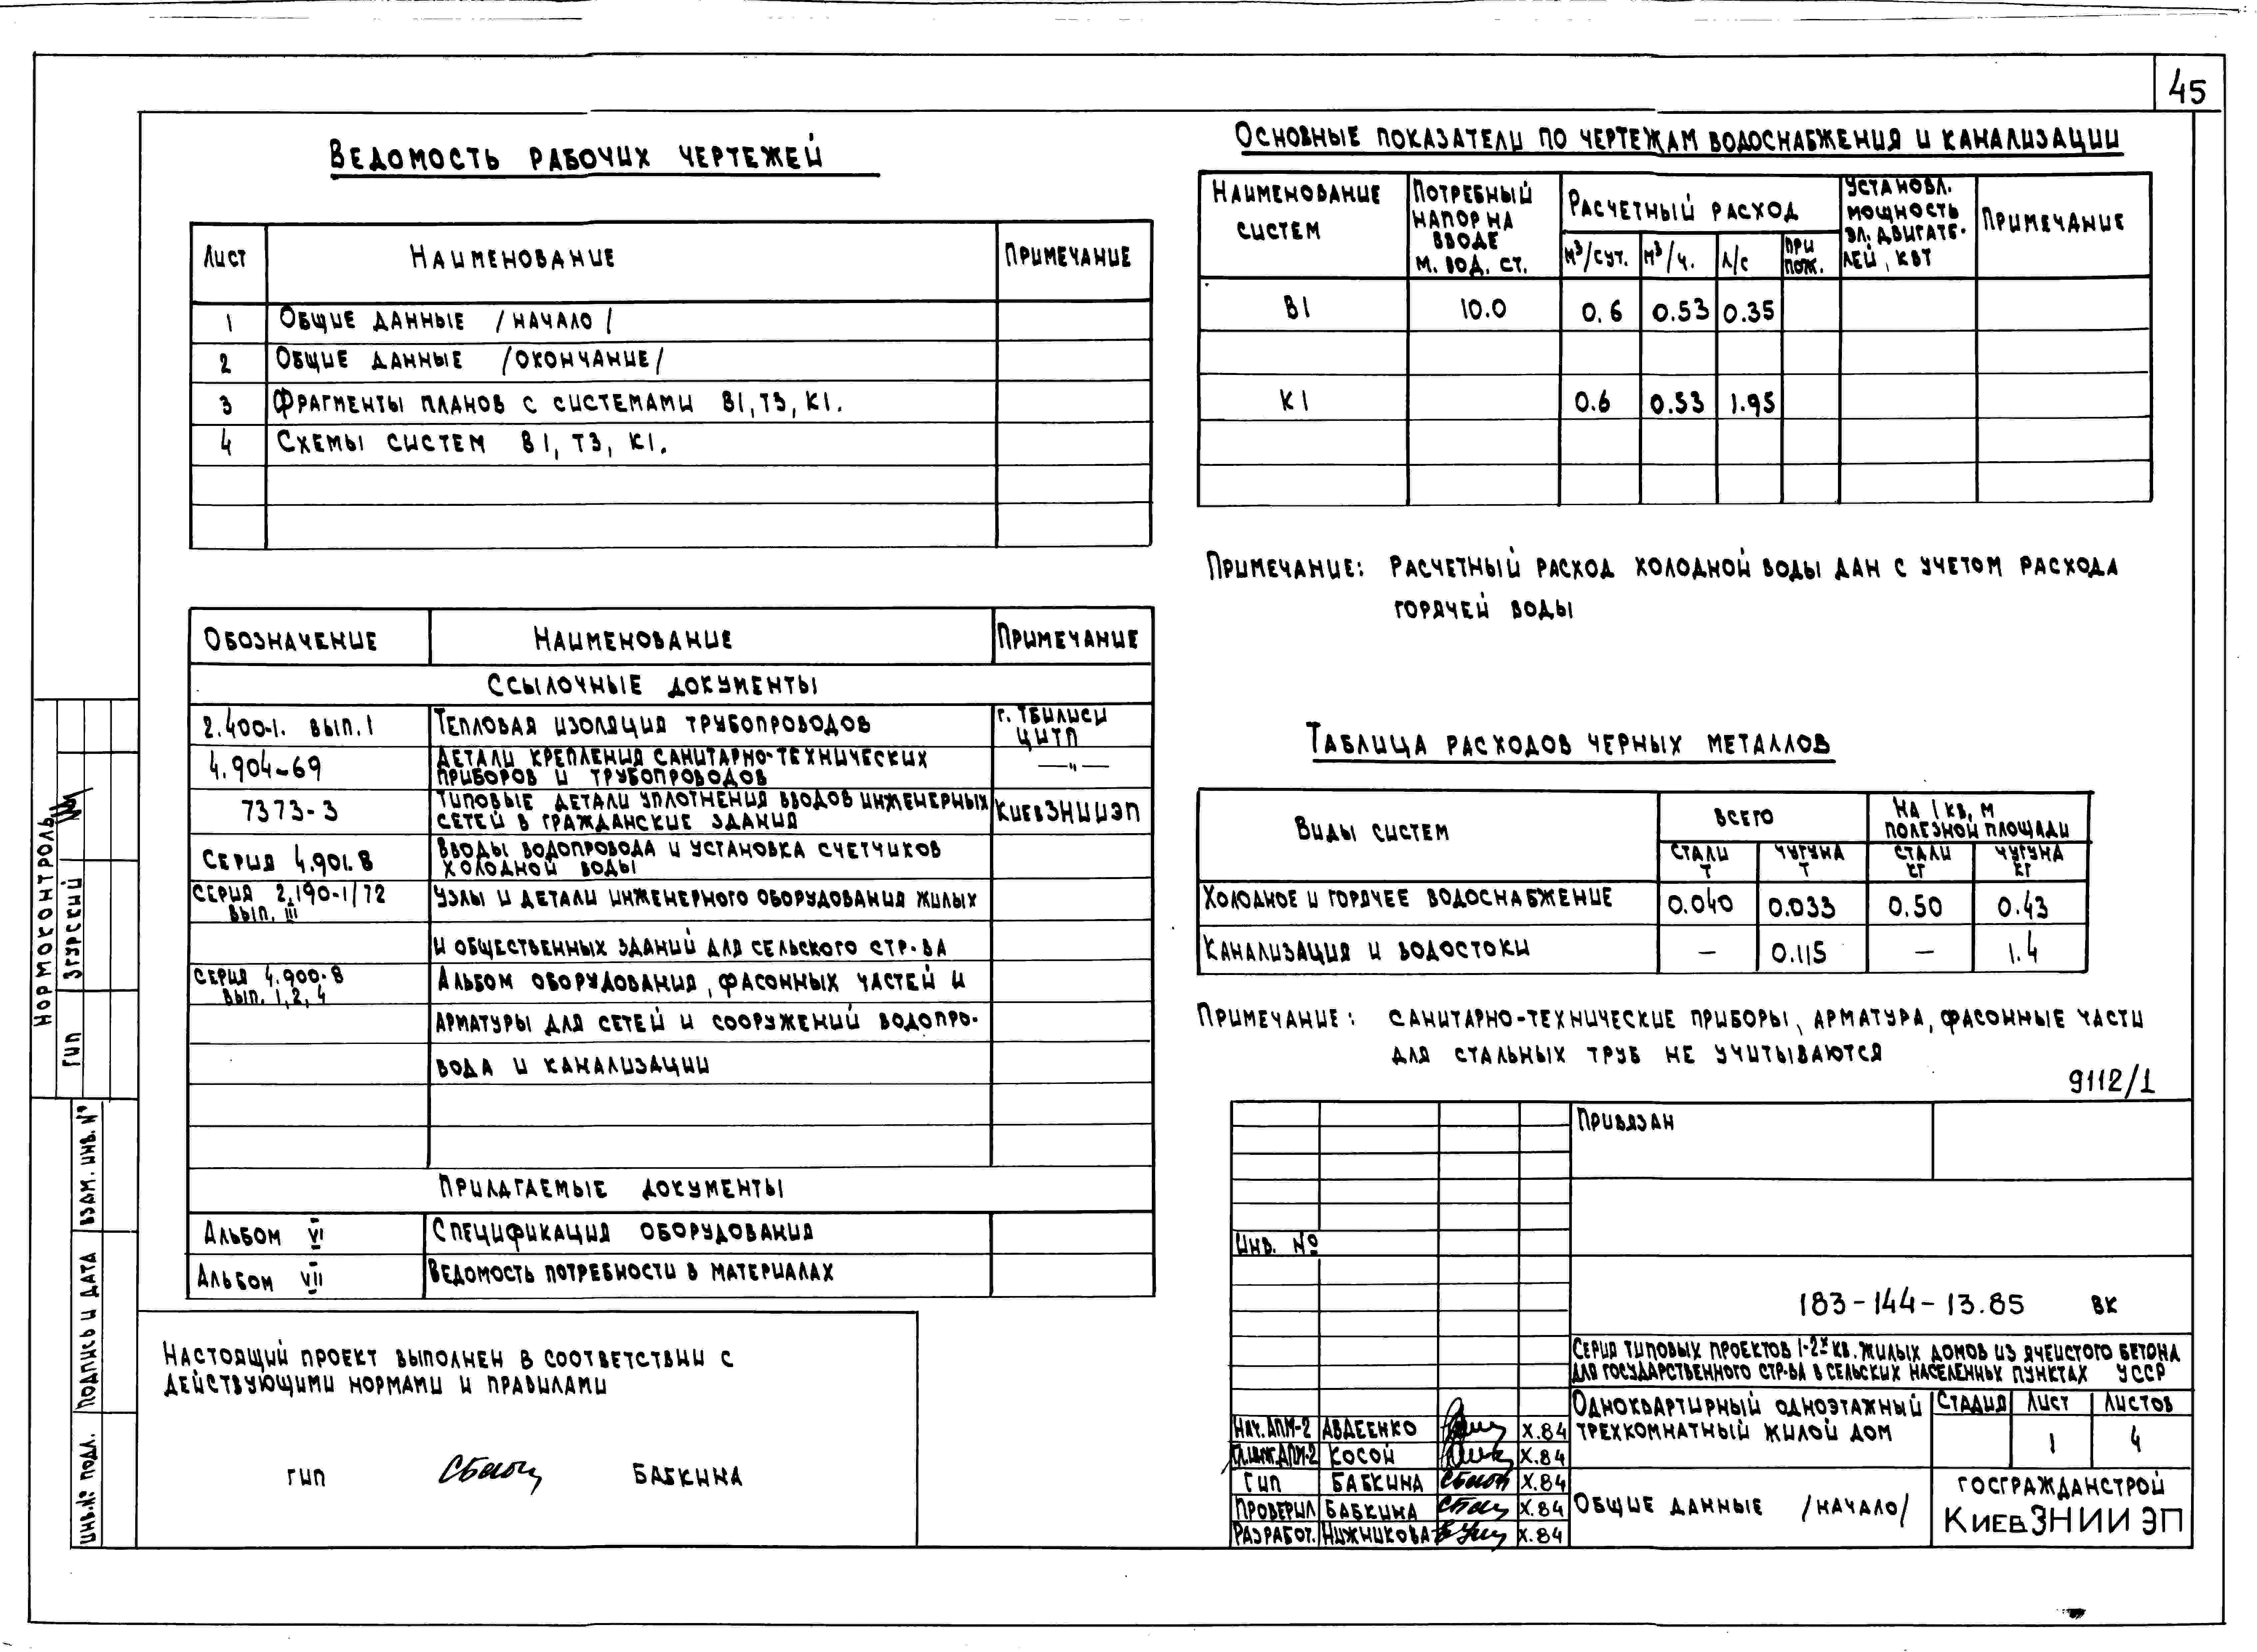 45
Ведомость рабочих чертежей
Лист Наименование Примечание
1 Общие данные /начало/
2 Общие данные /окончание/
3 Фрагменты планов с системами В1, Т3, К1.
4 Схемы систем В1, Т3, К1.
Обозначение Наименование Примечание
Ссылочные документы
2.400-1. вып. 1 Тепловая изоляция трубопроводов г. Тбилиси ЦИТП
4.904-69 Детали крепления санитарно-технических
приборов и трубопроводов —"—
7373-3 Типовые детали уплотнения вводов инженерных
сетей в гражданские здания КиевЗНИИЭП
Серия 4.901.8 Вводы водопровода и установка счетчиков
холодной воды
Серия 2.190-1/72 вып. III Узлы и детали инженерного оборудования жилых
и общественных зданий для сельского стр-ва
Серия 4.900-8 вып. 1,2,4 Альбом оборудования, фасонных частей и
арматуры для сетей и сооружений водопро-
вода и канализации
Прилагаемые документы
Альбом VI Спецификация оборудования
Альбом VII Ведомость потребности в материалах
Настоящий проект выполнен в соответствии с
действующими нормами и правилами
ГИП Бабкина
Основные показатели по чертежам водоснабжения и канализации
Наименование систем
Потребный напор на вводе м. вод. ст.
Расчетный расход
м³/сут. м³/ч. л/с при пож.
Установл. мощность эл. двигате-лей, квт
Примечание
В1 10.0 0.6 0.53 0.35
К1 0.6 0.53 1.95
Примечание: расчетный расход холодной воды дан с учетом расхода
горячей воды
Таблица расходов черных металлов
Виды систем всего на 1 кв. м полезной площади
стали т чугуна т стали кг чугуна кг
Холодное и горячее водоснабжение 0.040 0.033 0.50 0.43
Канализация и водостоки — 0.115 — 1.4
Примечание: санитарно-технические приборы, арматура, фасонные части
для стальных труб не учитываются
9112/1
Привязан
Инв. №
183-144-13.85 ВК
Серия типовых проектов 1-2х кв. жилых домов из ячеистого бетона
для государственного стр-ва в сельских населенных пунктах УССР
Одноквартирный одноэтажный
трехкомнатный жилой дом
Стадия Лист Листов
1 4
Нач. АПМ-2 Авдеенко X.84
Гл.инж.АПМ-2 Косой X.84
ГИП Бабкина X.84
Проверил Бабкина X.84
Разработ. Нижникова X.84
Общие данные /начало/
Госгражданстрой
КиевЗНИИЭП
Нормоконтроль
ГИП Згурский
Взам. инв. №
Подпись и дата
Инв. № подл.